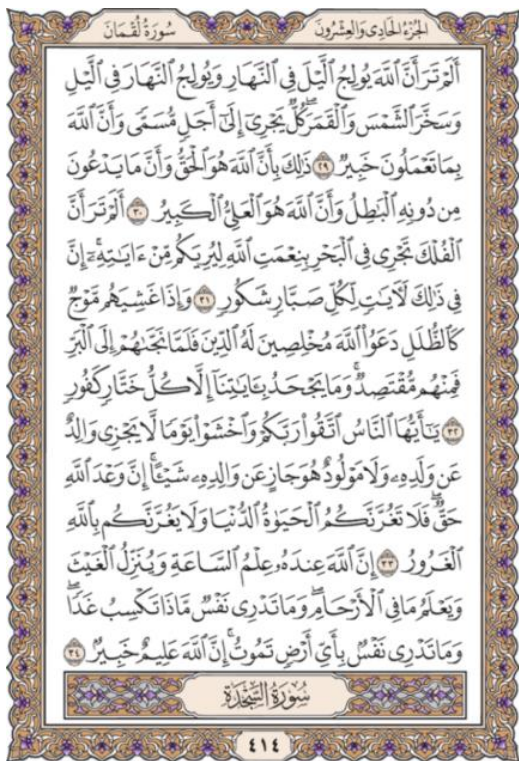 الجزء الحادى والعشرون
سورة لقمان
أَلَمْ تَرَ أَنَّ ٱللَّهَ يُولِجُ ٱلَّيْلَ فِى ٱلنَّهَارِ وَيُولِجُ ٱلنَّهَارَ فِى ٱلَّيْلِ
وَسَخَّرَ ٱلشَّمْسَ وَٱلْقَمَرَ كُلٌّ يَجْرِىٓ إِلَىٰٓ أَجَلٍ مُّسَمًّى وَأَنَّ ٱللَّهَ
بِمَا تَعْمَلُونَ خَبِيرٌ ٢٩ ذَٰلِكَ بِأَنَّ ٱللَّهَ هُوَ ٱلْحَقُّ وَأَنَّ مَا يَدْعُونَ
مِن دُونِهِ ٱلْبَٰطِلُ وَأَنَّ ٱللَّهَ هُوَ ٱلْعَلِىُّ ٱلْكَبِيرُ ٣٠ أَلَمْ تَرَ أَنَّ
ٱلْفُلْكَ تَجْرِى فِى ٱلْبَحْرِ بِنِعْمَتِ ٱللَّهِ لِيُرِيَكُم مِّنْ ءَايَٰتِهِۦٓ ۚ إِنَّ
فِى ذَٰلِكَ لَءَايَٰتٍ لِّكُلِّ صَبَّارٍ شَكُورٍ ٣١ وَإِذَا غَشِيَهُم مَّوْجٌ
كَٱلظُّلَلِ دَعَوُا۟ ٱللَّهَ مُخْلِصِينَ لَهُ ٱلدِّينَ فَلَمَّا نَجَّىٰهُمْ إِلَى ٱلْبَرِّ
فَمِنْهُم مُّقْتَصِدٌ ۚ وَمَا يَجْحَدُ بِـَٔايَٰتِنَآ إِلَّا كُلُّ خَتَّارٍ كَفُورٍ
٣٢ يَٰٓأَيُّهَا ٱلنَّاسُ ٱتَّقُوا۟ رَبَّكُمْ وَٱخْشَوْا۟ يَوْمًا لَّا يَجْزِى وَالِدٌ
عَن وَلَدِهِۦ وَلَا مَوْلُودٌ هُوَ جَازٍ عَن وَالِدِهِۦ شَيْـًٔا ۚ إِنَّ وَعْدَ ٱللَّهِ
حَقٌّ ۖ فَلَا تَغُرَّنَّكُمُ ٱلْحَيَوٰةُ ٱلدُّنْيَا وَلَا يَغُرَّنَّكُم بِٱللَّهِ
ٱلْغَرُورُ ٣٣ إِنَّ ٱللَّهَ عِندَهُۥ عِلْمُ ٱلسَّاعَةِ وَيُنَزِّلُ ٱلْغَيْثَ
وَيَعْلَمُ مَا فِى ٱلْأَرْحَامِ ۖ وَمَا تَدْرِى نَفْسٌ مَّاذَا تَكْسِبُ غَدًا ۖ
وَمَا تَدْرِى نَفْسٌۢ بِأَىِّ أَرْضٍ تَمُوتُ ۚ إِنَّ ٱللَّهَ عَلِيمٌ خَبِيرٌۢ ٣٤
سورة السجدة
٤١٤